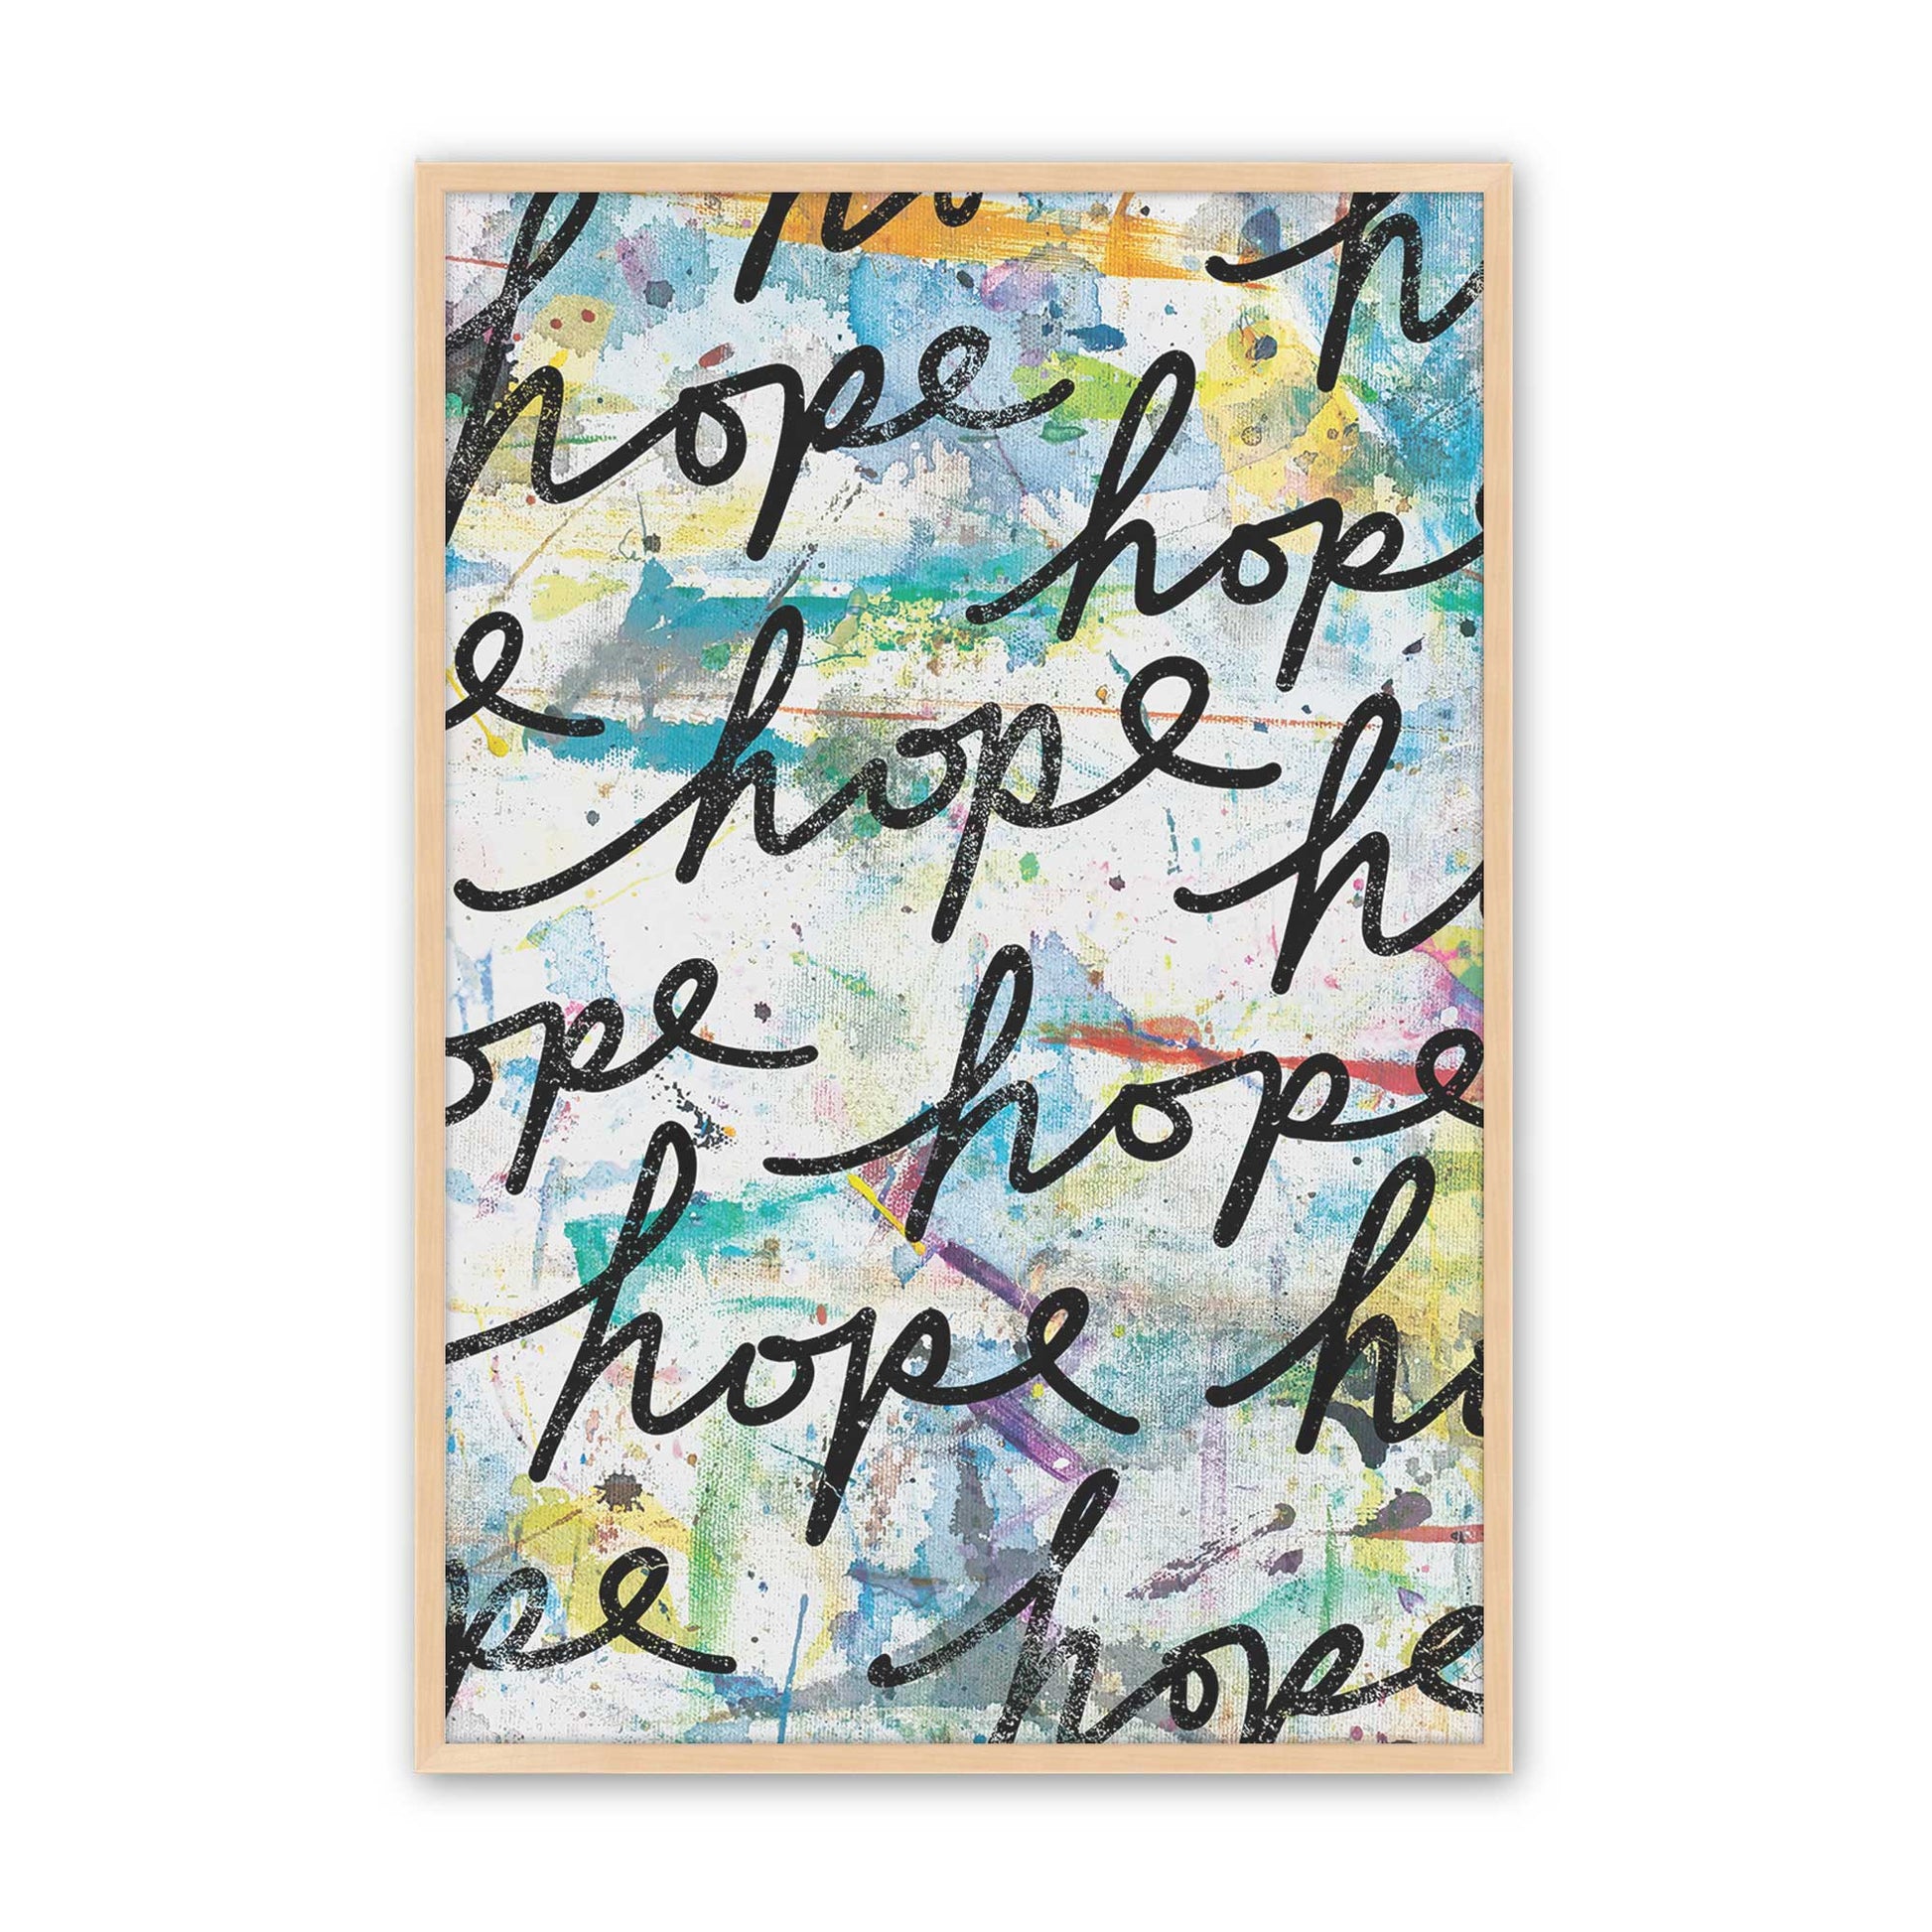 h
hope hop
e hope h
ope hope
hope h
pe hope